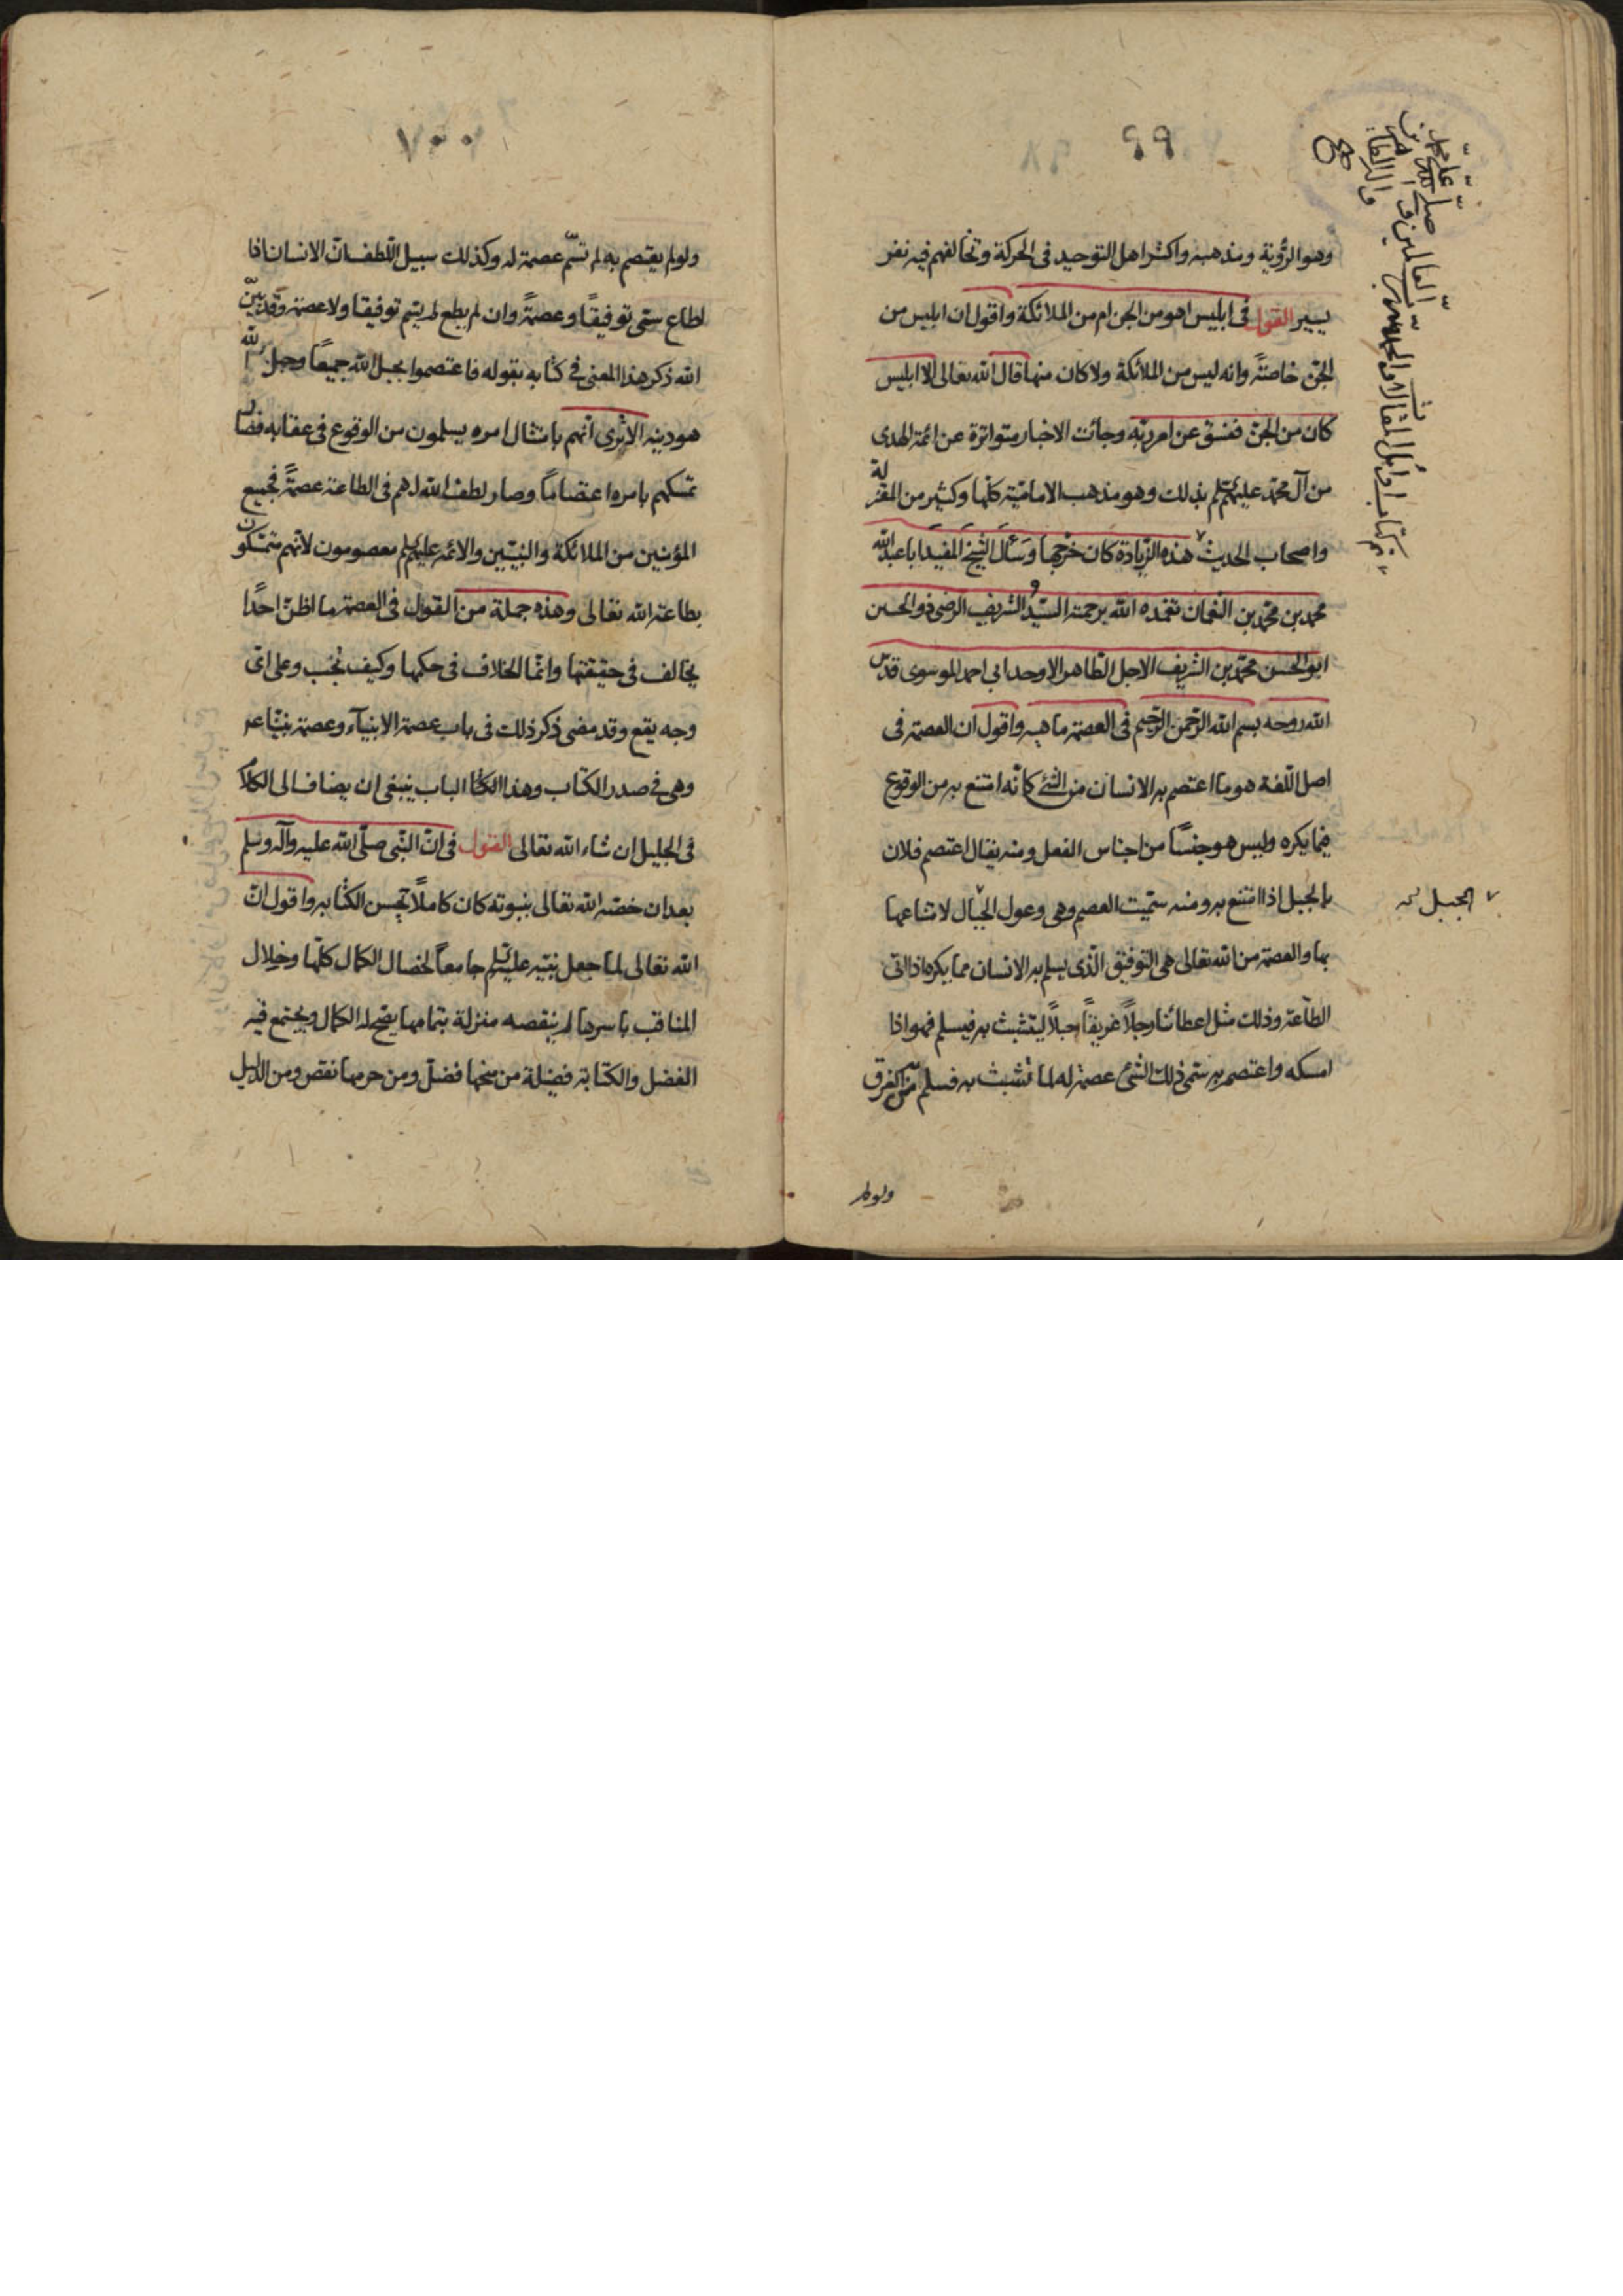 ٩٩
وهو الرؤية ومذهبه واكثر اهل التوحيد فى الحركة وتخالفهم فيه نفر
يسير القول فى ابليس اهو من الجن ام من الملائكة واقول ان ابليس من
الجن خاصة وانه ليس من الملائكة ولا كان منها قال الله تعالى الا ابليس
كان من الجن ففسق عن امر ربه وجائت الاخبار متواترة عن ائمة الهدى
من آل محمد عليهم بذلك وهو مذهب الامامية كلها وكثير من المعتزلة
واصحاب الحديث هذه الزيادة كان خرجها وسئال الشيخ المفيد ابا عبد الله
محمد بن محمد بن النعمان تغمده الله برحمته السيد الشريف الرضى ذو الحسين
ابو الحسن محمد بن الشريف الاجل الطاهر الاوحد ابي احمد الموسوى قدس
الله روحه بسم الله الرحمن الرحيم فى العصمة ما هيه واقول ان العصمة فى
اصل اللغة هو ما اعتصم به الانسان من الشئ كانه امتنع به من الوقوع
فيما يكره وليس هو جنسًا من اجناس الفعل ومنه يقال اعتصم فلان
بالجبل اذا امتنع به ومنه سميت العصم وهى وعول الجبال لامتناعها
الجبل
بها والعصمة من الله تعالى هى التوفيق الذى يسلم به الانسان مما يكره اذا اتى
الطاعة وذلك مثل اعطائنا رجلاً غريقًا حبلاً ليتشبث به فيسلم فهو اذا
امسكه واعتصم به سمى ذلك الشئ عصمة له لما تشبث به فسلم من الغرق
ولو لم
تم كتاب اوائل المقالات والحمد لله رب العالمين و صلى الله على محمد وآله الطاهرين
٧٠٠
ولو لم يعتصم به لم تسم عصمة له وكذلك سبيل اللطف ان الانسان اذا
اطاع سمى توفيقًا وعصمةً وان لم يطع لم يسم توفيقا ولا عصمة وقد بين
الله ذكر هذا المعنى فى كتابه بقوله فاعتصموا بحبل الله جميعًا وحبل الله
هو دينه الا ترى انهم بامتثال امره يسلمون من الوقوع فى عقابه فصار
تمسكهم بامره اعتصامًا وصار لطف الله لهم فى الطاعة عصمةً فجميع
المؤمنين من الملائكة والنبيين والائمه عليهم معصومون لانهم متمسكون
بطاعة الله تعالى وهذه جملة من القول فى العصمة ما اظن احدًا
يخالف فى حقيقتها وانما الخلاف فى حكمها وكيف تجب وعلى اى
وجه يقع وقد مضى ذكر ذلك فى باب عصمة الانبياء وعصمة نبينا عم
وهى فى صدر الكتاب وهذا الباب ينبغى ان يضاف الى الكلام
فى الجليل ان شاء الله تعالى القول فى ان النبى صلى الله عليه وآله وسلم
بعد ان خصه الله تعالى بنبوته كان كاملاً يحسن الكتابه واقول ان
الله تعالى لما جعل نبيه عليه جامعًا لخصال الكمال كلها وخلال
المناقب باسرها لم ينقصه منزلة بتمامها يصح له الكمال ويجتمع فيه
الفضل والكتابة فضيلة من منحها فضل ومن حرمها نقص ومن الدليل